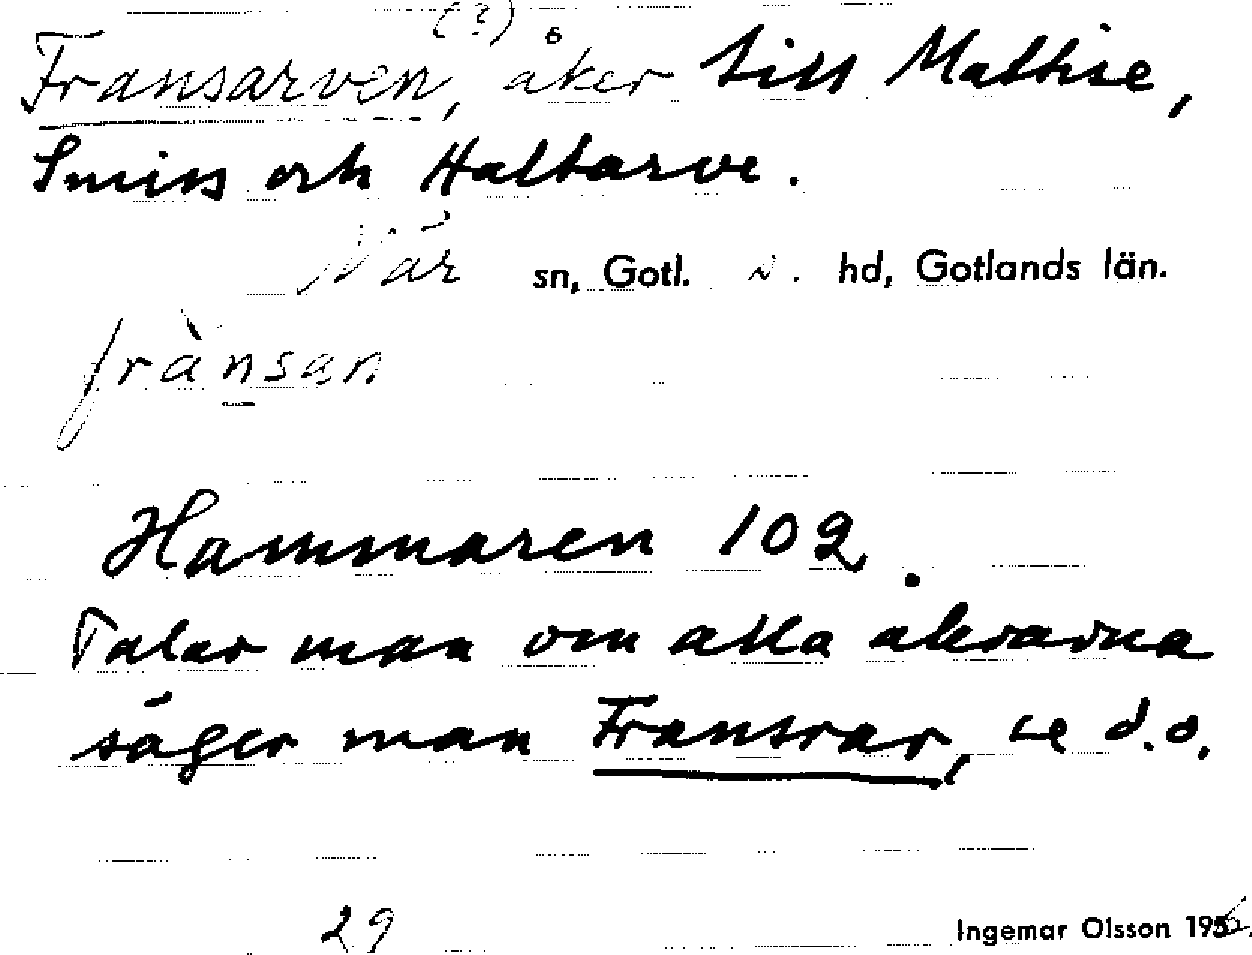 (?)
Fransarven, åker till Mathie,
Smiss och Hallbarve.
När sn, Gotl. s. hd, Gotlands län.
frànsan
Hammaren 102.
Talar man om alla åkrarna
säger man Fransrar, se d.o.
29 Ingemar Olsson 1956.